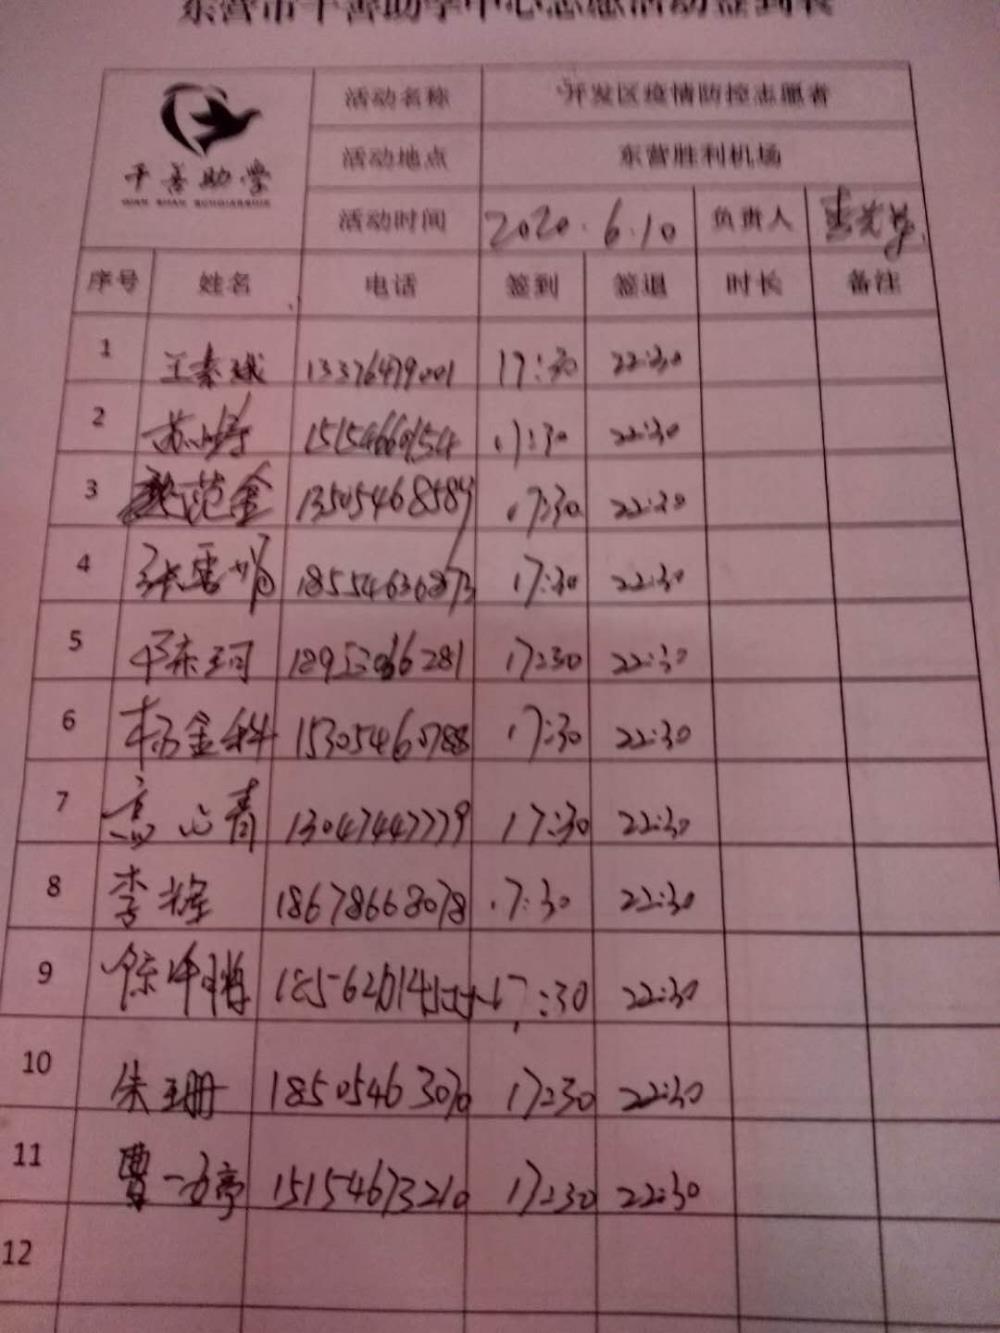 东营市千善助学中心志愿活动签到表
千善助学 活动名称 开发区疫情防控志愿者
QIAN SHAN SCHOLARSHIP 活动地点 东营胜利机场
活动时间 2020.6.10 负责人
序号 姓名 电话 签到 签退 时长 备注
1 王秦斌 13376479001 17:30 22:30
2 15154660154 17:30 22:30
3 范金 13505468589 17:30 22:30
4 18554636873 17:30 22:30
5 陈珂 17:30 22:30
6 杨金科 15305460788 17:30 22:30
7 13047447779 17:30 22:30
8 李辉 18678668078 17:30 22:30
9 17:30 22:30
10 朱玉珊 18505463070 17:30 22:30
11 曹 15154673210 17:30 22:30
12